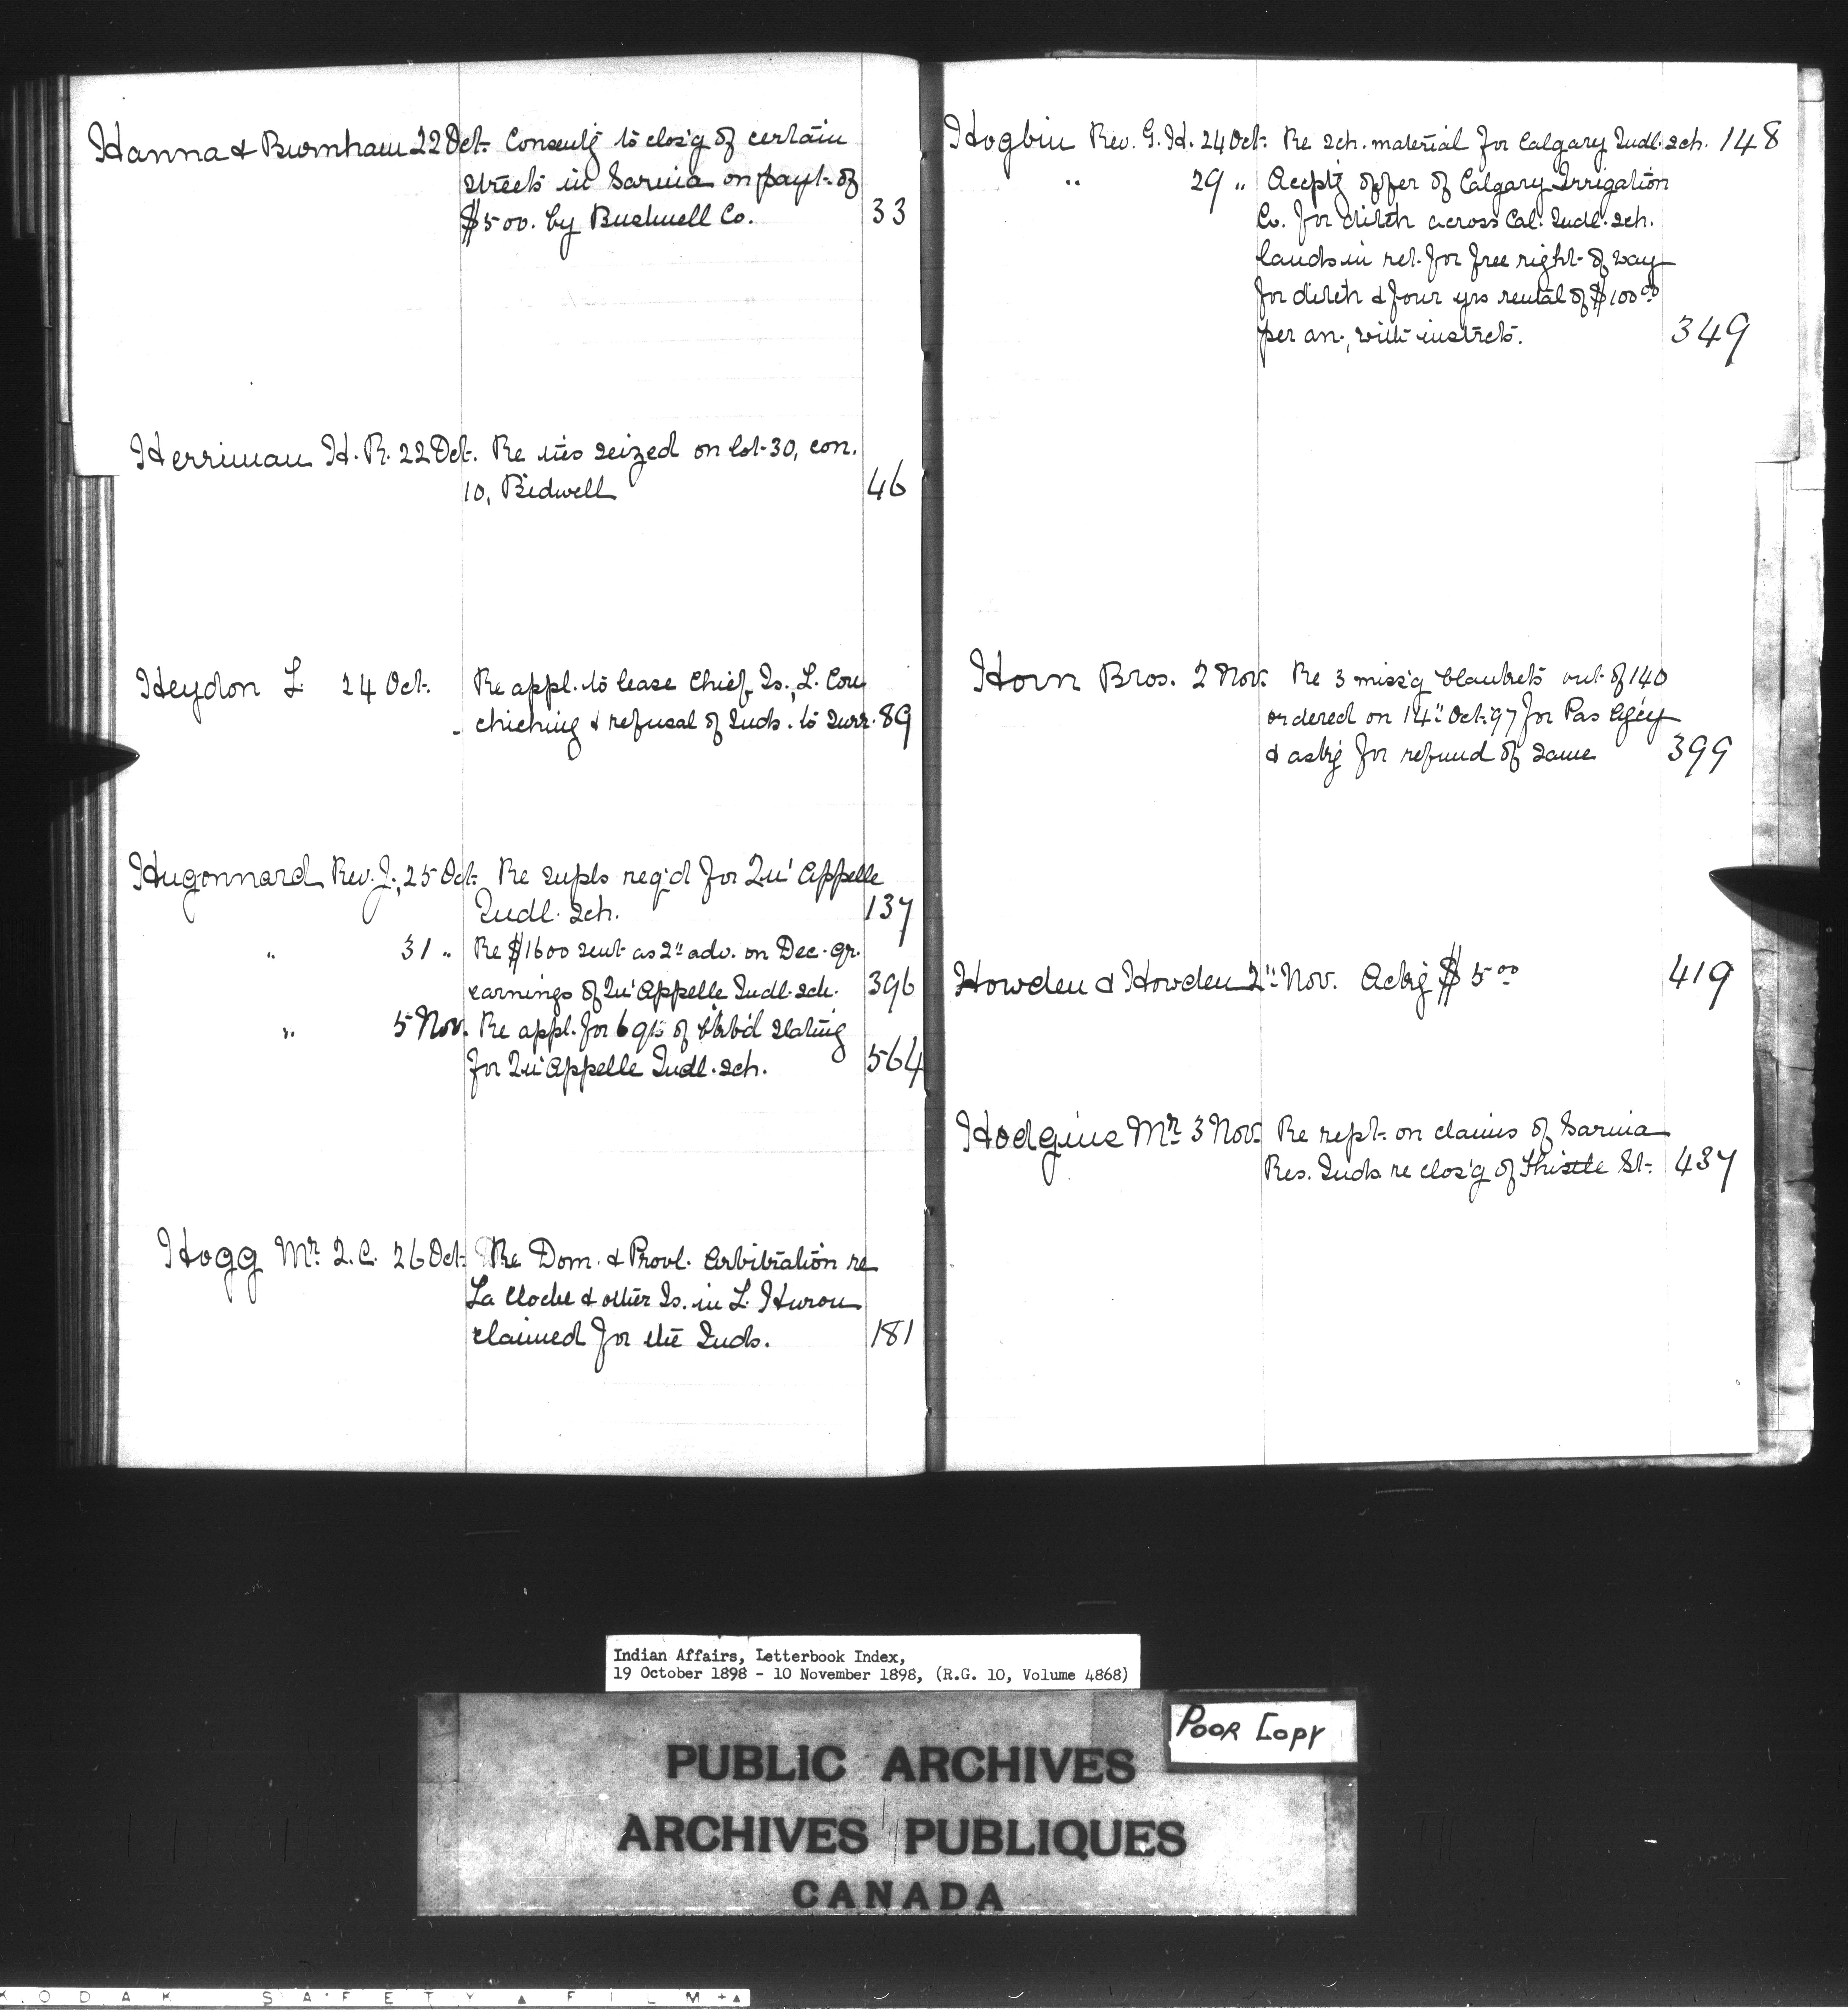 Hanna & Burnham 22 Oct. Consentg to clos'g of certain
streets in Sarnia on payt. of
$500. by Bushnell Co. 33
Herriman H. R. 22 Oct. Re ties seized on lot 30, con.
10, Bidwell 46
Heydon L. 24 Oct. Re appl. to lease Chief Is., L. Cou
chiching & refusal of Inds. to surr. 89
Hugonnard Rev. J., 25 Oct. Re supls req'd for Qu'Appelle
Indl. sch. 137
" 31 " Re $1600 sent as 2" adv. on Dec. qr.
earnings of Qu'Appelle Indl. sch. 396
" 5 Nov. Re appl. for 6 qts of bkb'd slating
for Qu'Appelle Indl. sch. 564
Hogg Mr. Q.C. 26 Oct. Re Dom. & Provl. Arbitration re
La Cloche & other Is. in L. Huron
claimed for the Inds. 181
Hogbin Rev. G. H. 24 Oct. Re sch. material for Calgary Indl. sch. 148
" 29 " Accptg offer of Calgary Irrigation
Co. for ditch across Cal. Indl. sch.
lands in ret. for free right of way
for ditch & four yrs rental of $100.00
per an., with instrcts. 349
Horn Bros. 2 Nov. Re 3 miss'g blankets out of 140
ordered on 14" Oct. 97 for Pas Agcy
& askg for refund of same 399
Howden & Howden 2" Nov. Ackg $5.00 419
Hodgins Mr. 3 Nov. Re rept. on claims of Sarnia
Res. Inds. re clos'g of Thistle St. 437
Indian Affairs, Letterbook Index,
19 October 1898 - 10 November 1898, (R.G. 10, Volume 4868)
POOR COPY
PUBLIC ARCHIVES
ARCHIVES PUBLIQUES
CANADA
KODAK SAFETY FILM